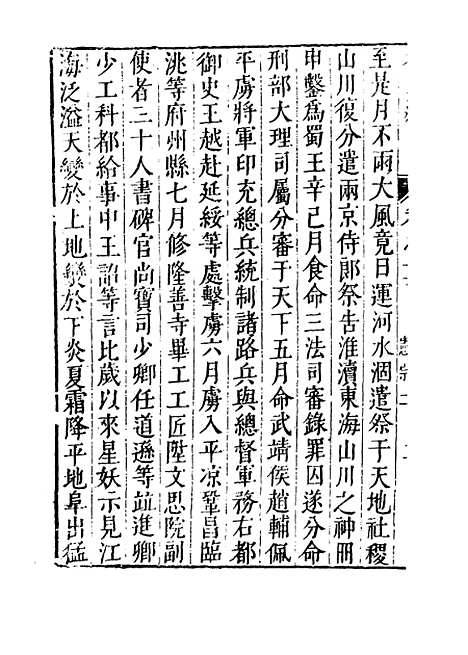 至是月不雨大風竟日運河水涸遣祭于天地社稷
山川復分遣兩京侍郎祭告淮瀆東海山川之神冊
申鑿爲蜀王辛己月食命三法司審錄罪囚遂分命
刑部大理司屬分審于天下五月命武靖侯趙輔佩
平虜將軍印充總兵統制諸路兵與總督軍務右都
御史王越赴延綏等處擊虜六月虜入平凉鞏昌臨
洮等府州縣七月修隆善寺畢工工匠陞文思院副
使者二十人書碑官尚寶司少卿任道遜等竝進卿
少工科都給事中王詔等言比歲以來星妖示見江
海泛溢天變於上地變於下炎夏霜降平地阜出猛